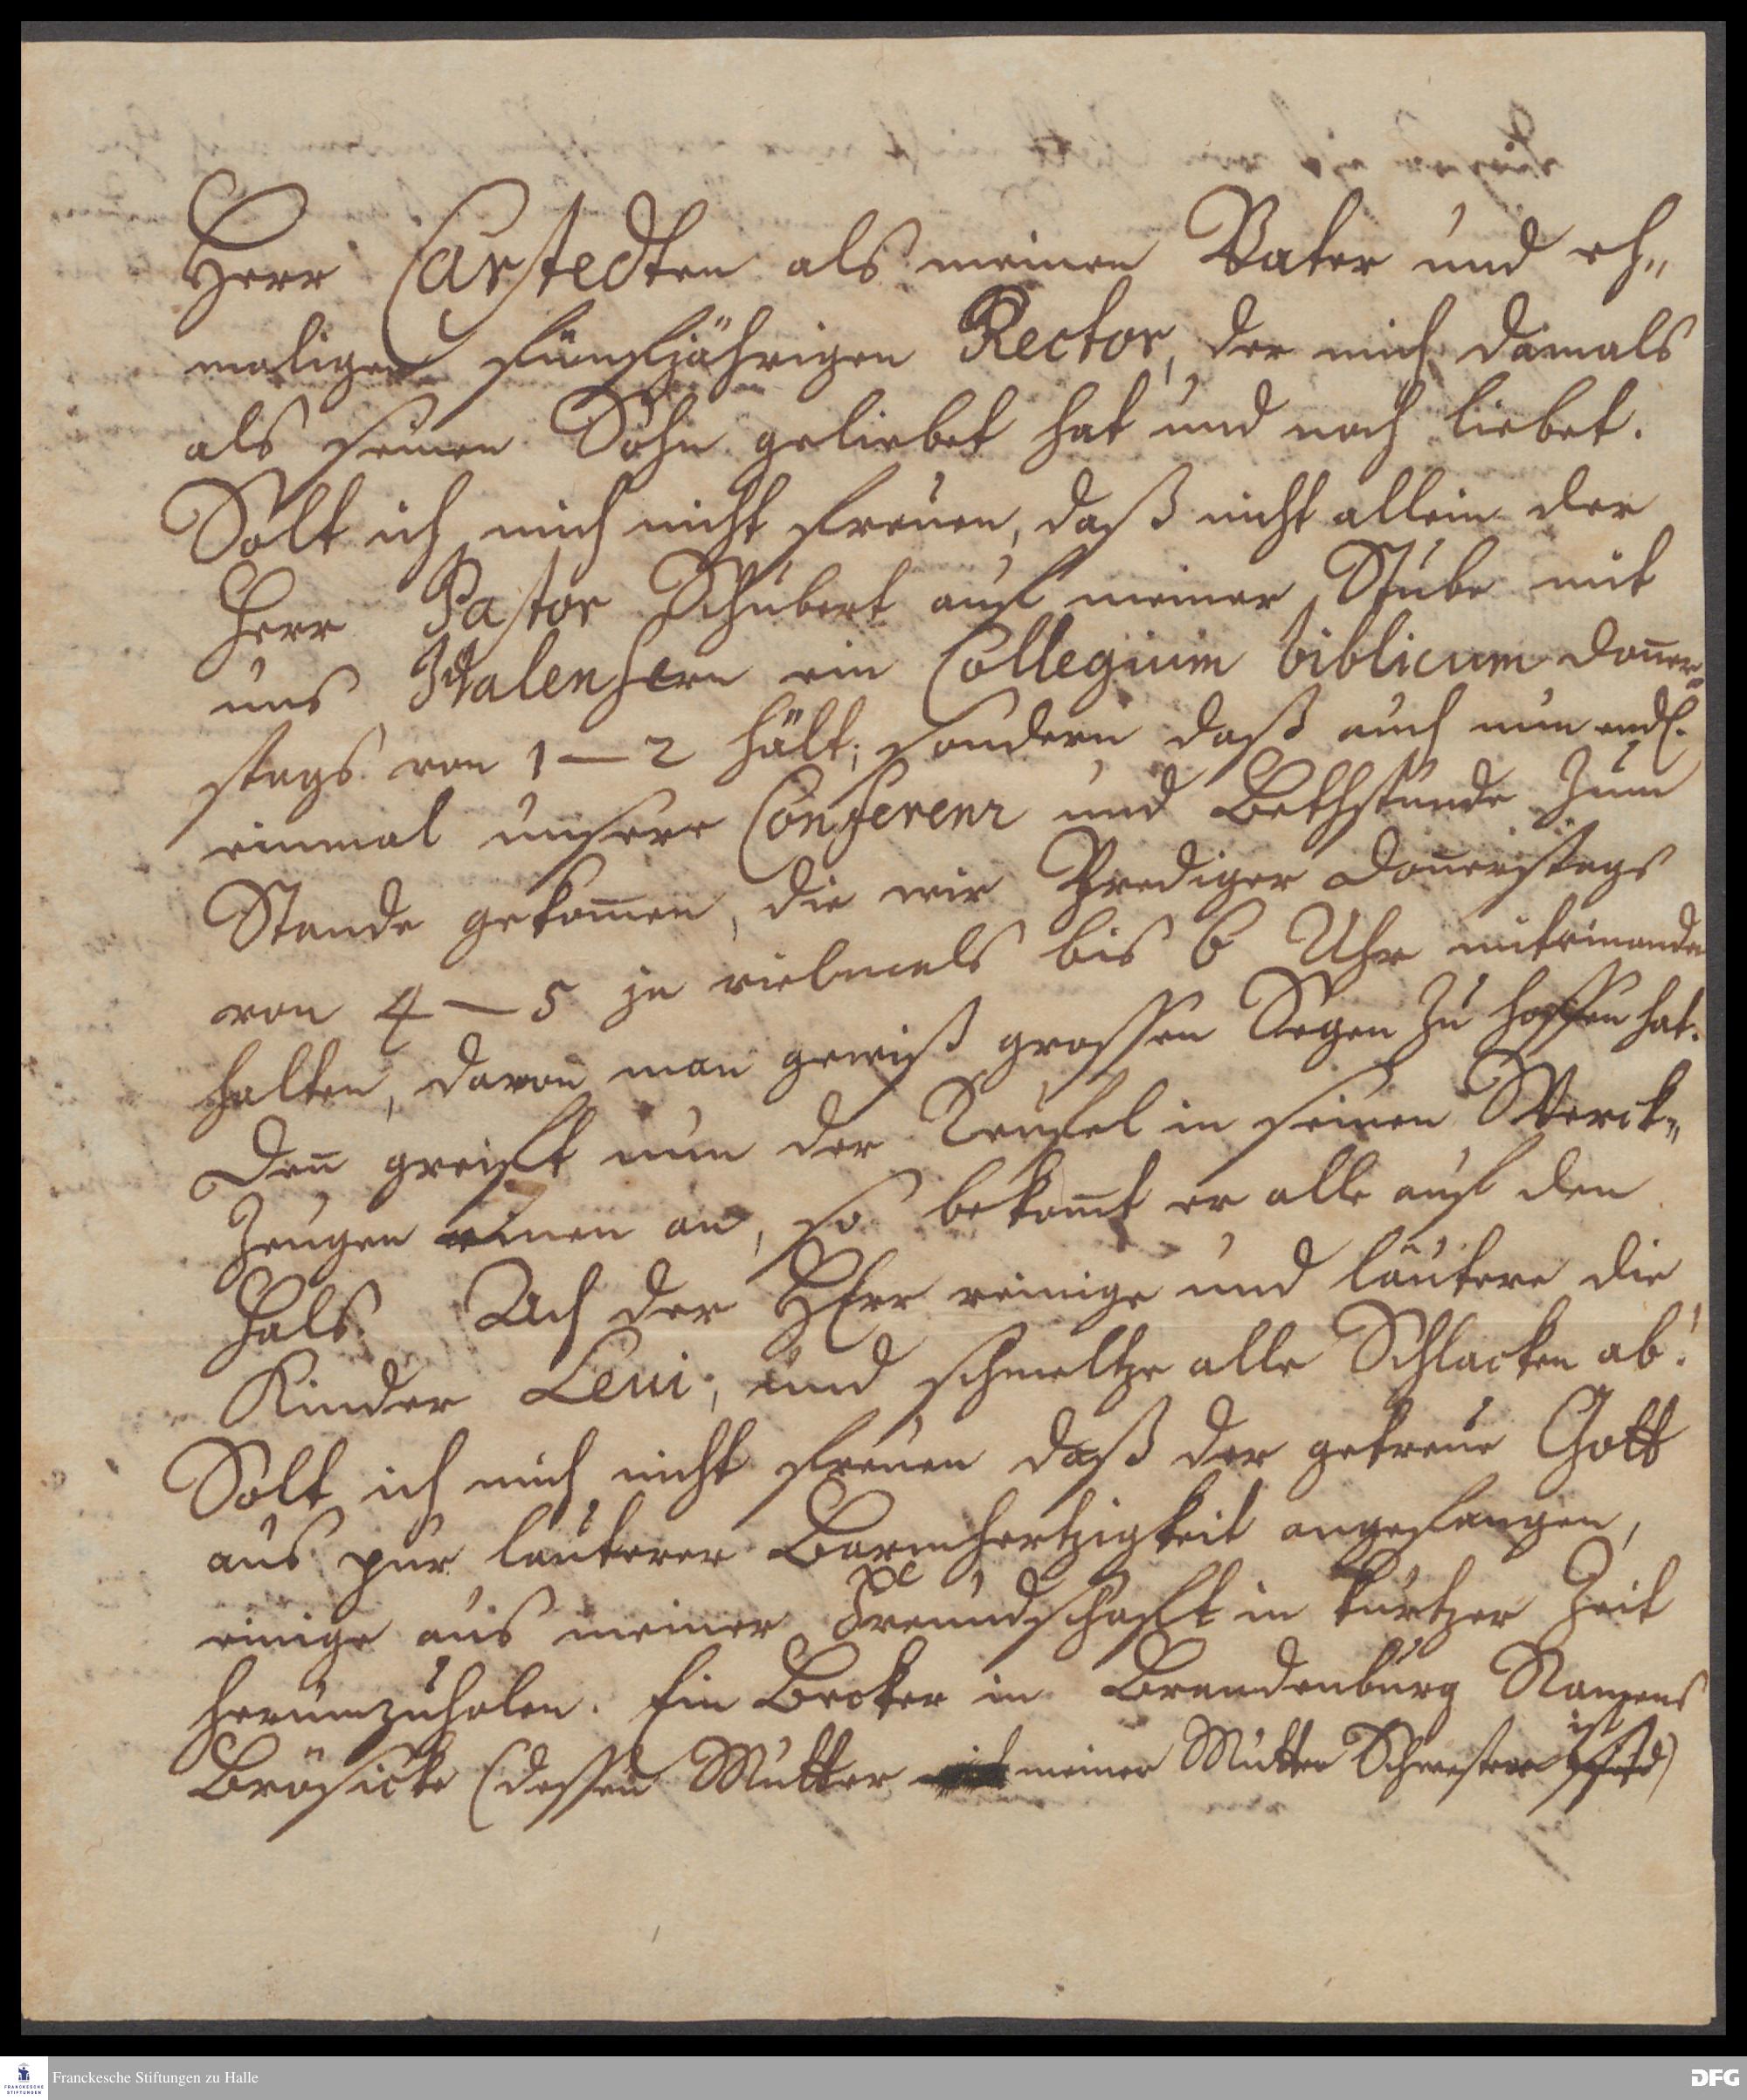 Herr Carstedten als meinen Vater und eh„
maligen fünfjährigen Rector, der mich damals
als seinen Sohn geliebet hat und noch liebet.
Solt ich mich nicht freuen, daß nicht allein der
Herr Pastor Schubert auf meiner Stube mit
uns ein Collegium biblicum Doñer„
stags von 1 — 2 hält; sondern daß auch nun endl.
einmal unsere Conferenz und Bethstunde zum
Stande gekom̃en, die wir Prediger Doñerstags
von 4 — 5 ja vielmals bis 6 Uhr miteinander
halten, davon man gewiß grossen Segen zu hoffen hat.
Deñ greift nun der Teufel in seinen Werck„
zeugen einen an, so bekom̃t er alle auf den
Hals. Ach der HErr reinige und läutere die
Kinder Levi, und schmeltze alle Schlacken ab!
Solt ich mich nicht freuen daß der getreue Gott
aus pur lauterer Barmhertzigkeit angefangen,
einige aus meiner Freundschafft in kurtzer Zeit
herumzuholen. Ein Becker in Brandenburg Namens
Brösicke (dessen Mutter meiner Mutter Schwester ist)
Franckesche Stiftungen zu Halle
DFG